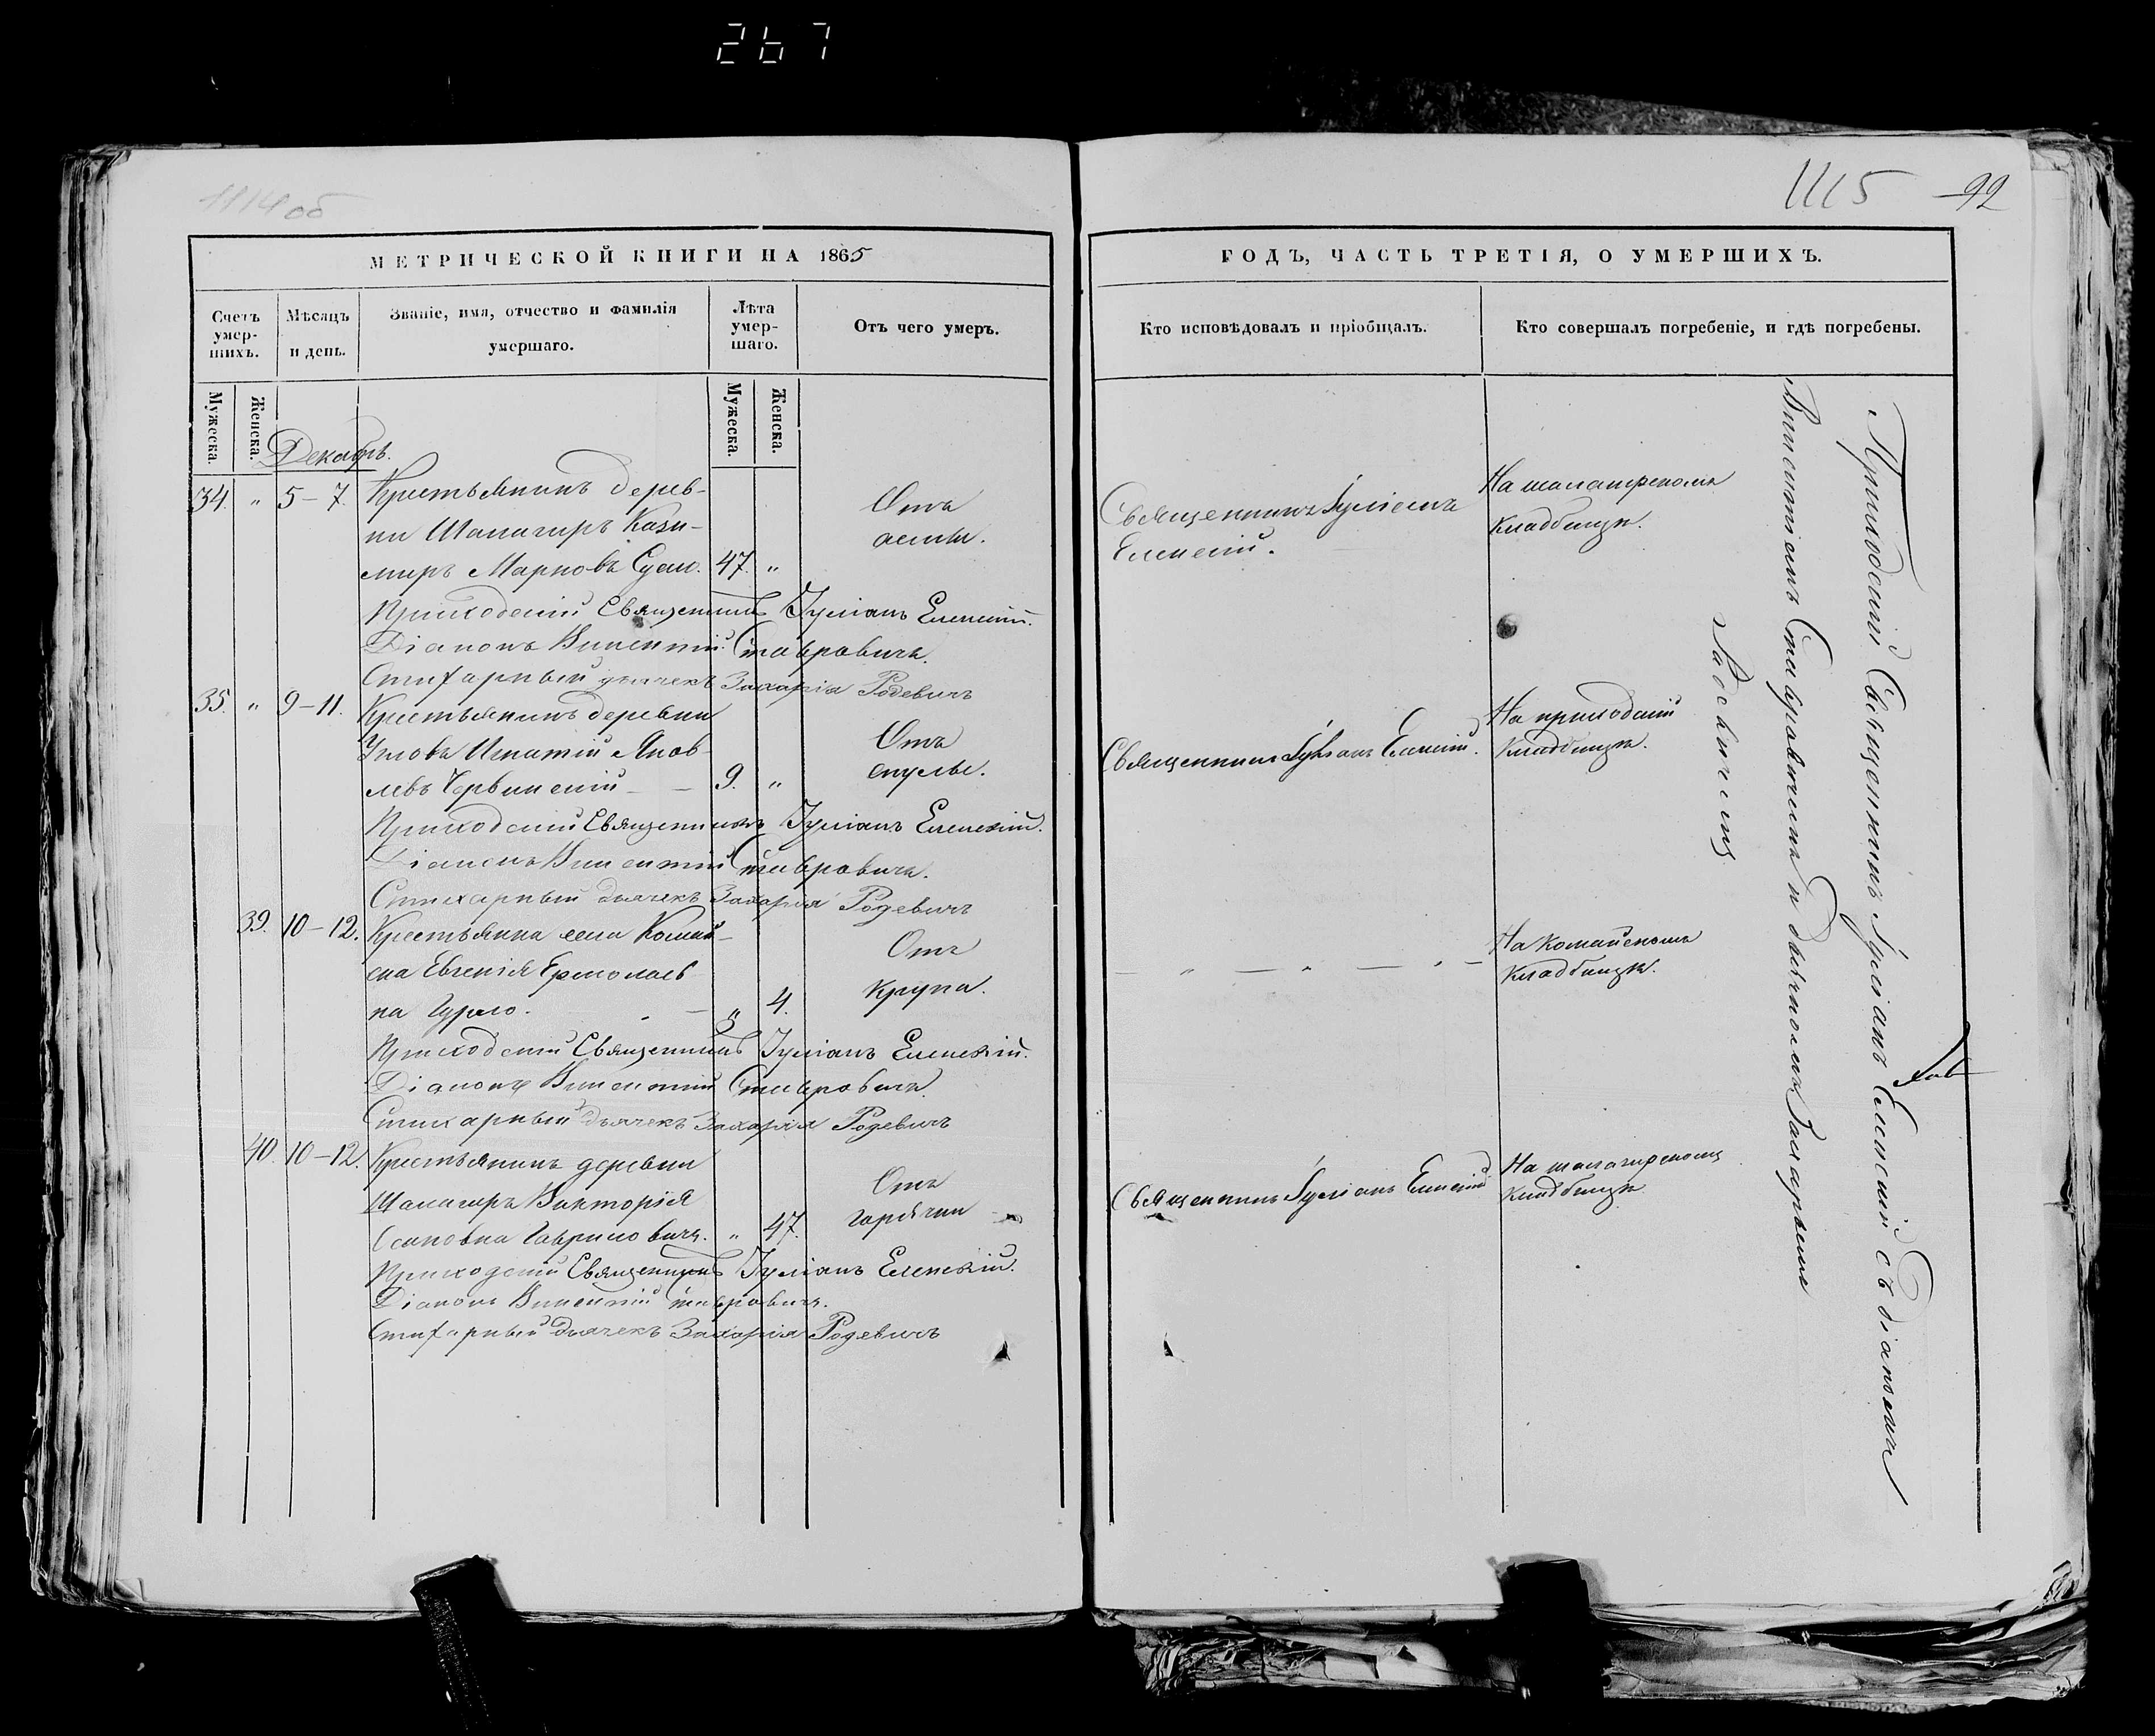 267
1114 об
МЕТРИЧЕСКОЙ КНИГИ НА 1865
Счетъ умер-шихъ.
Мѣсяцъ и день.
Званіе, имя, отчество и фамилія умершаго.
Лѣта умер-шаго.
Отъ чего умеръ.
Мужеска.
Женска.
Мужеска.
Женска.
Декабрь.
34. " 5-7. Крестьянинъ дерев- Отъ
ни Шалагиръ Кази- астмы.
миръ Марковъ 47. "
Приходскій Священникъ Іуліанъ Еленскій.
Діаконъ Викентій Ставровичъ.
Стихарный дьячекъ Захарія Родевичъ
35. " 9-11. Крестьянинъ деревни Отъ
Игнатій Яков-
левъ Червинскій 9. "
Приходскій Священникъ Іуліанъ Еленскій.
Діаконъ Викентій Ставровичъ.
Стихарный дьячекъ Захарія Родевичъ
39. 10-12. Крестьянка села Комай- Отъ
ска Евгенія Ермолаев крупа.
на Гурло. " 4.
Приходскій Священникъ Іуліанъ Еленскій.
Діаконъ Викентій Ставровичъ.
Стихарный дьячекъ Захарія Родевичъ
40. 10-12. Крестьянинъ деревни Отъ
Шалагиръ Викторія горячки
Осиповна Гавриловичъ. " 47.
Приходскій Священникъ Іуліанъ Еленскій.
Діаконъ Викентій Ставровичъ.
Стихарный дьячекъ Захарія Родевичъ
1115 92
ГОДЪ, ЧАСТЬ ТРЕТІЯ, О УМЕРШИХЪ.
Кто исповѣдовалъ и пріобщалъ.
Кто совершалъ погребеніе, и гдѣ погребены.
Священникъ Іуліанъ
Еленскій.
На шалагирскомъ
кладбищѣ.
Священникъ Іуліанъ Еленскій.
На приходскій
кладбищѣ.
— " — " — " —
На комайскомъ
кладбищѣ.
Священникъ Іуліанъ Еленскій
На шалагирскомъ
кладбищѣ.
Приходскій Священникъ Іуліанъ Еленскій съ діакономъ
Викентіемъ Ставровичемъ и дьячкомъ Захаріемъ
Родевичемъ